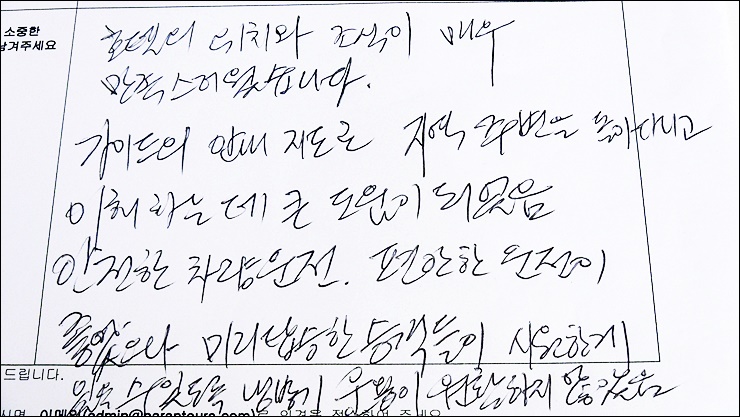 소중한
남겨주세요
호텔의 위치와 조식이 매우
만족스러웠습니다.
가이드의 안내 지도로 지역 주변을 돌아다니고
이해하는데 큰 도움이 되었음
안전한 차량운전. 편안한 운전이
좋았으나 미리탑승한 승객들이 시원하게
드립니다.
있도록 냉방기 원활하지 않았음
이메일(admin@